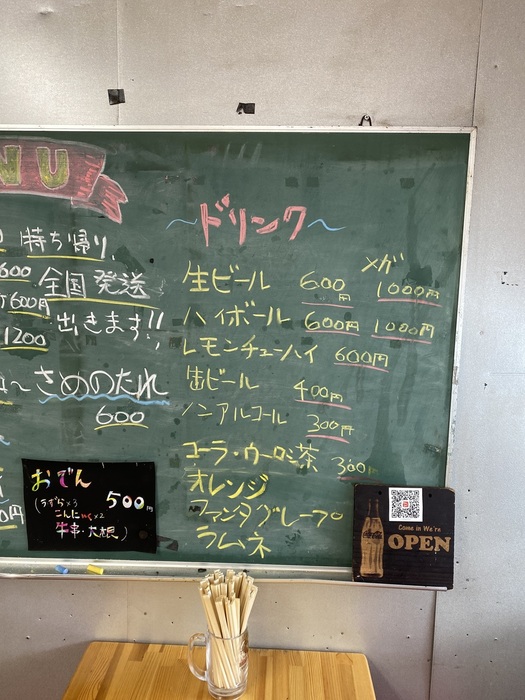 NU
持ち帰り、
600 全国発送
600円 出きます!!
1200
~さめのたれ
600
おでん
(うずら×3
こんにゃく×2
牛串・大根)
500円
~ドリンク~
メガ
生ビール 600円 1000円
ハイボール 600円 1000円
レモンチューハイ 600円
缶ビール 400円
ノンアルコール 300円
コーラ・ウーロン茶 300円
オレンジ
ファンタグレープ
ラムネ
Come in We're
OPEN